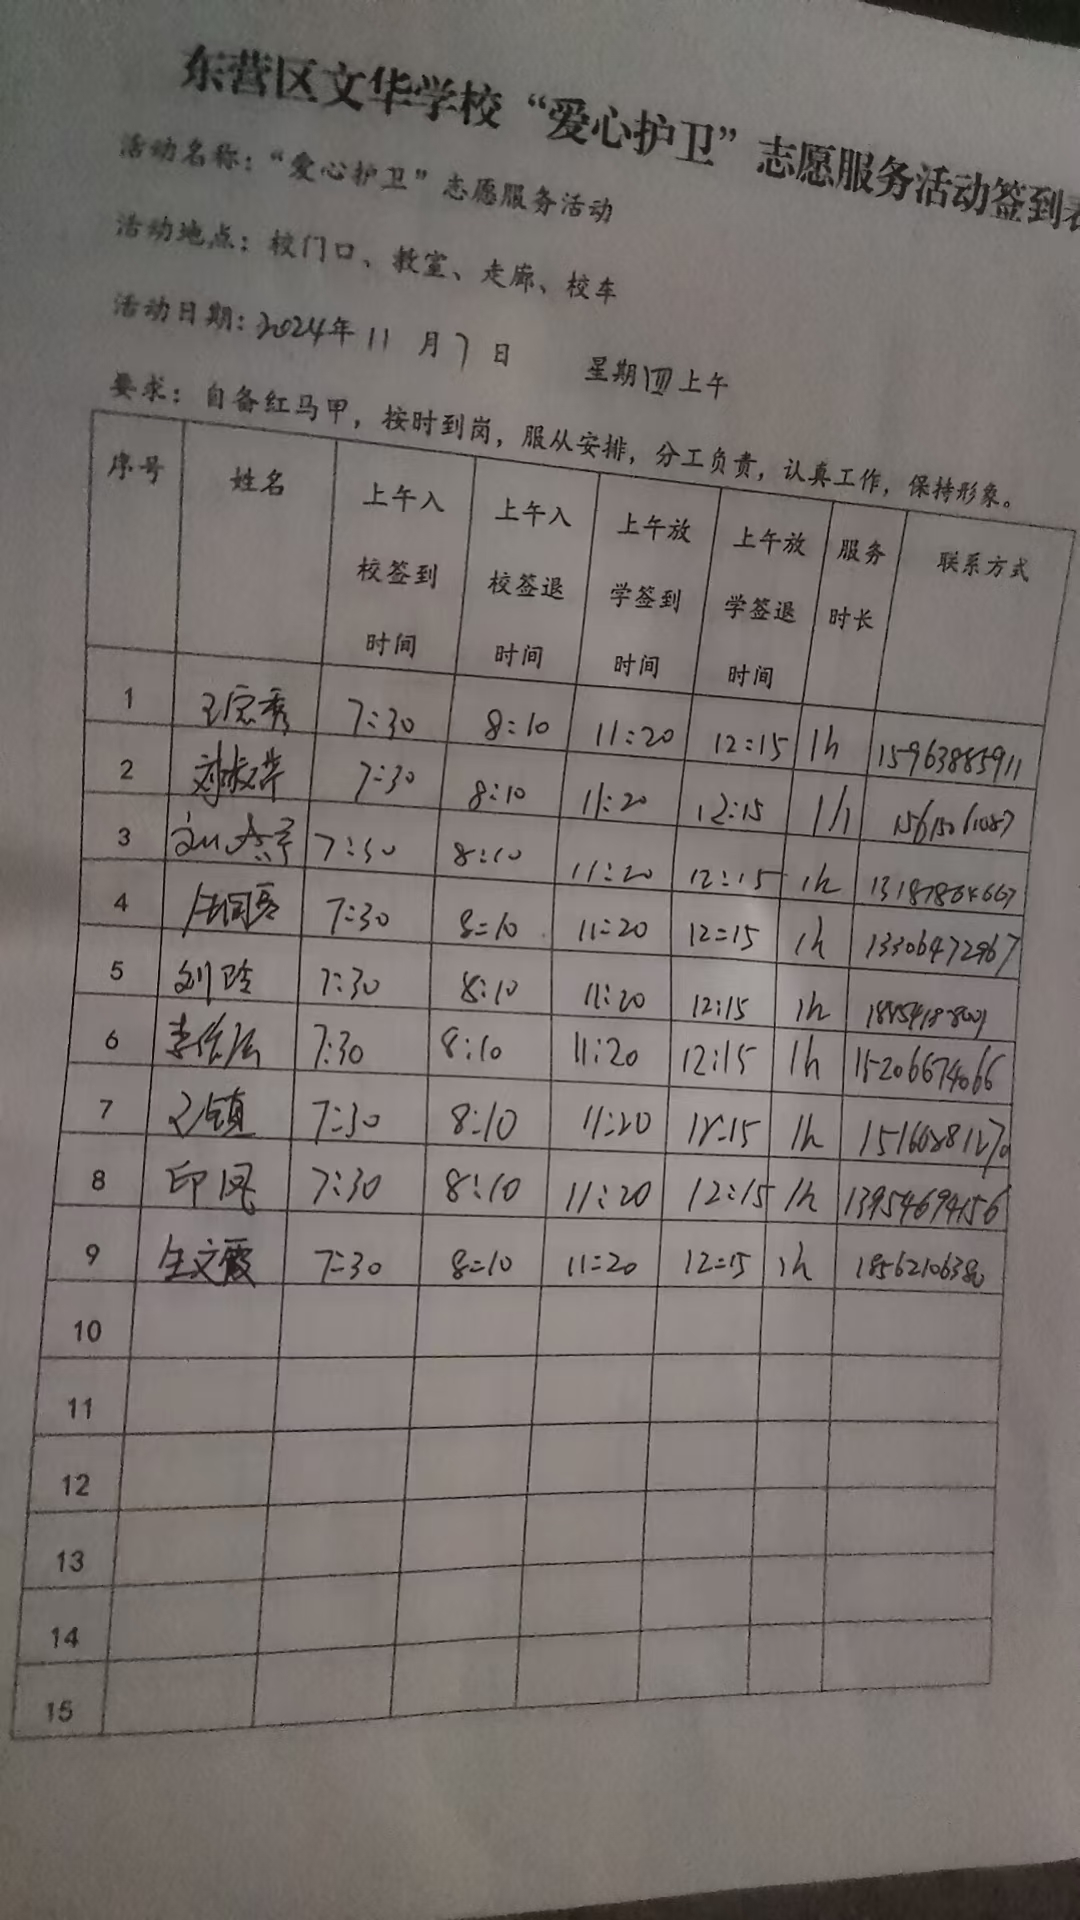 东营区文华学校“爱心护卫”志愿服务活动签到表
活动名称：“爱心护卫”志愿服务活动
活动地点：校门口、教室、走廊、校车
活动日期：2024年11月7日 星期四上午
要求：自备红马甲，按时到岗，服从安排，分工负责，认真工作，保持形象。
序号 姓名 上午入校签到时间 上午入校签退时间 上午放学签到时间 上午放学签退时间 服务时长 联系方式
1 7:30 8:10 11:20 12:15 1h 15963885911
2 7:30 8:10 11:20 12:15 1h
3 7:30 8:10 11:20 12:15 1h 13187864667
4 7:30 8:10 11:20 12:15 1h 13306472967
5 刘玲 7:30 8:10 11:20 12:15 1h
6 7:30 8:10 11:20 12:15 1h 15206674066
7 7:30 8:10 11:20 12:15 1h
8 印凤 7:30 8:10 11:20 12:15 1h 13954694156
9 生文霞 7:30 8:10 11:20 12:15 1h 18562106380
10
11
12
13
14
15